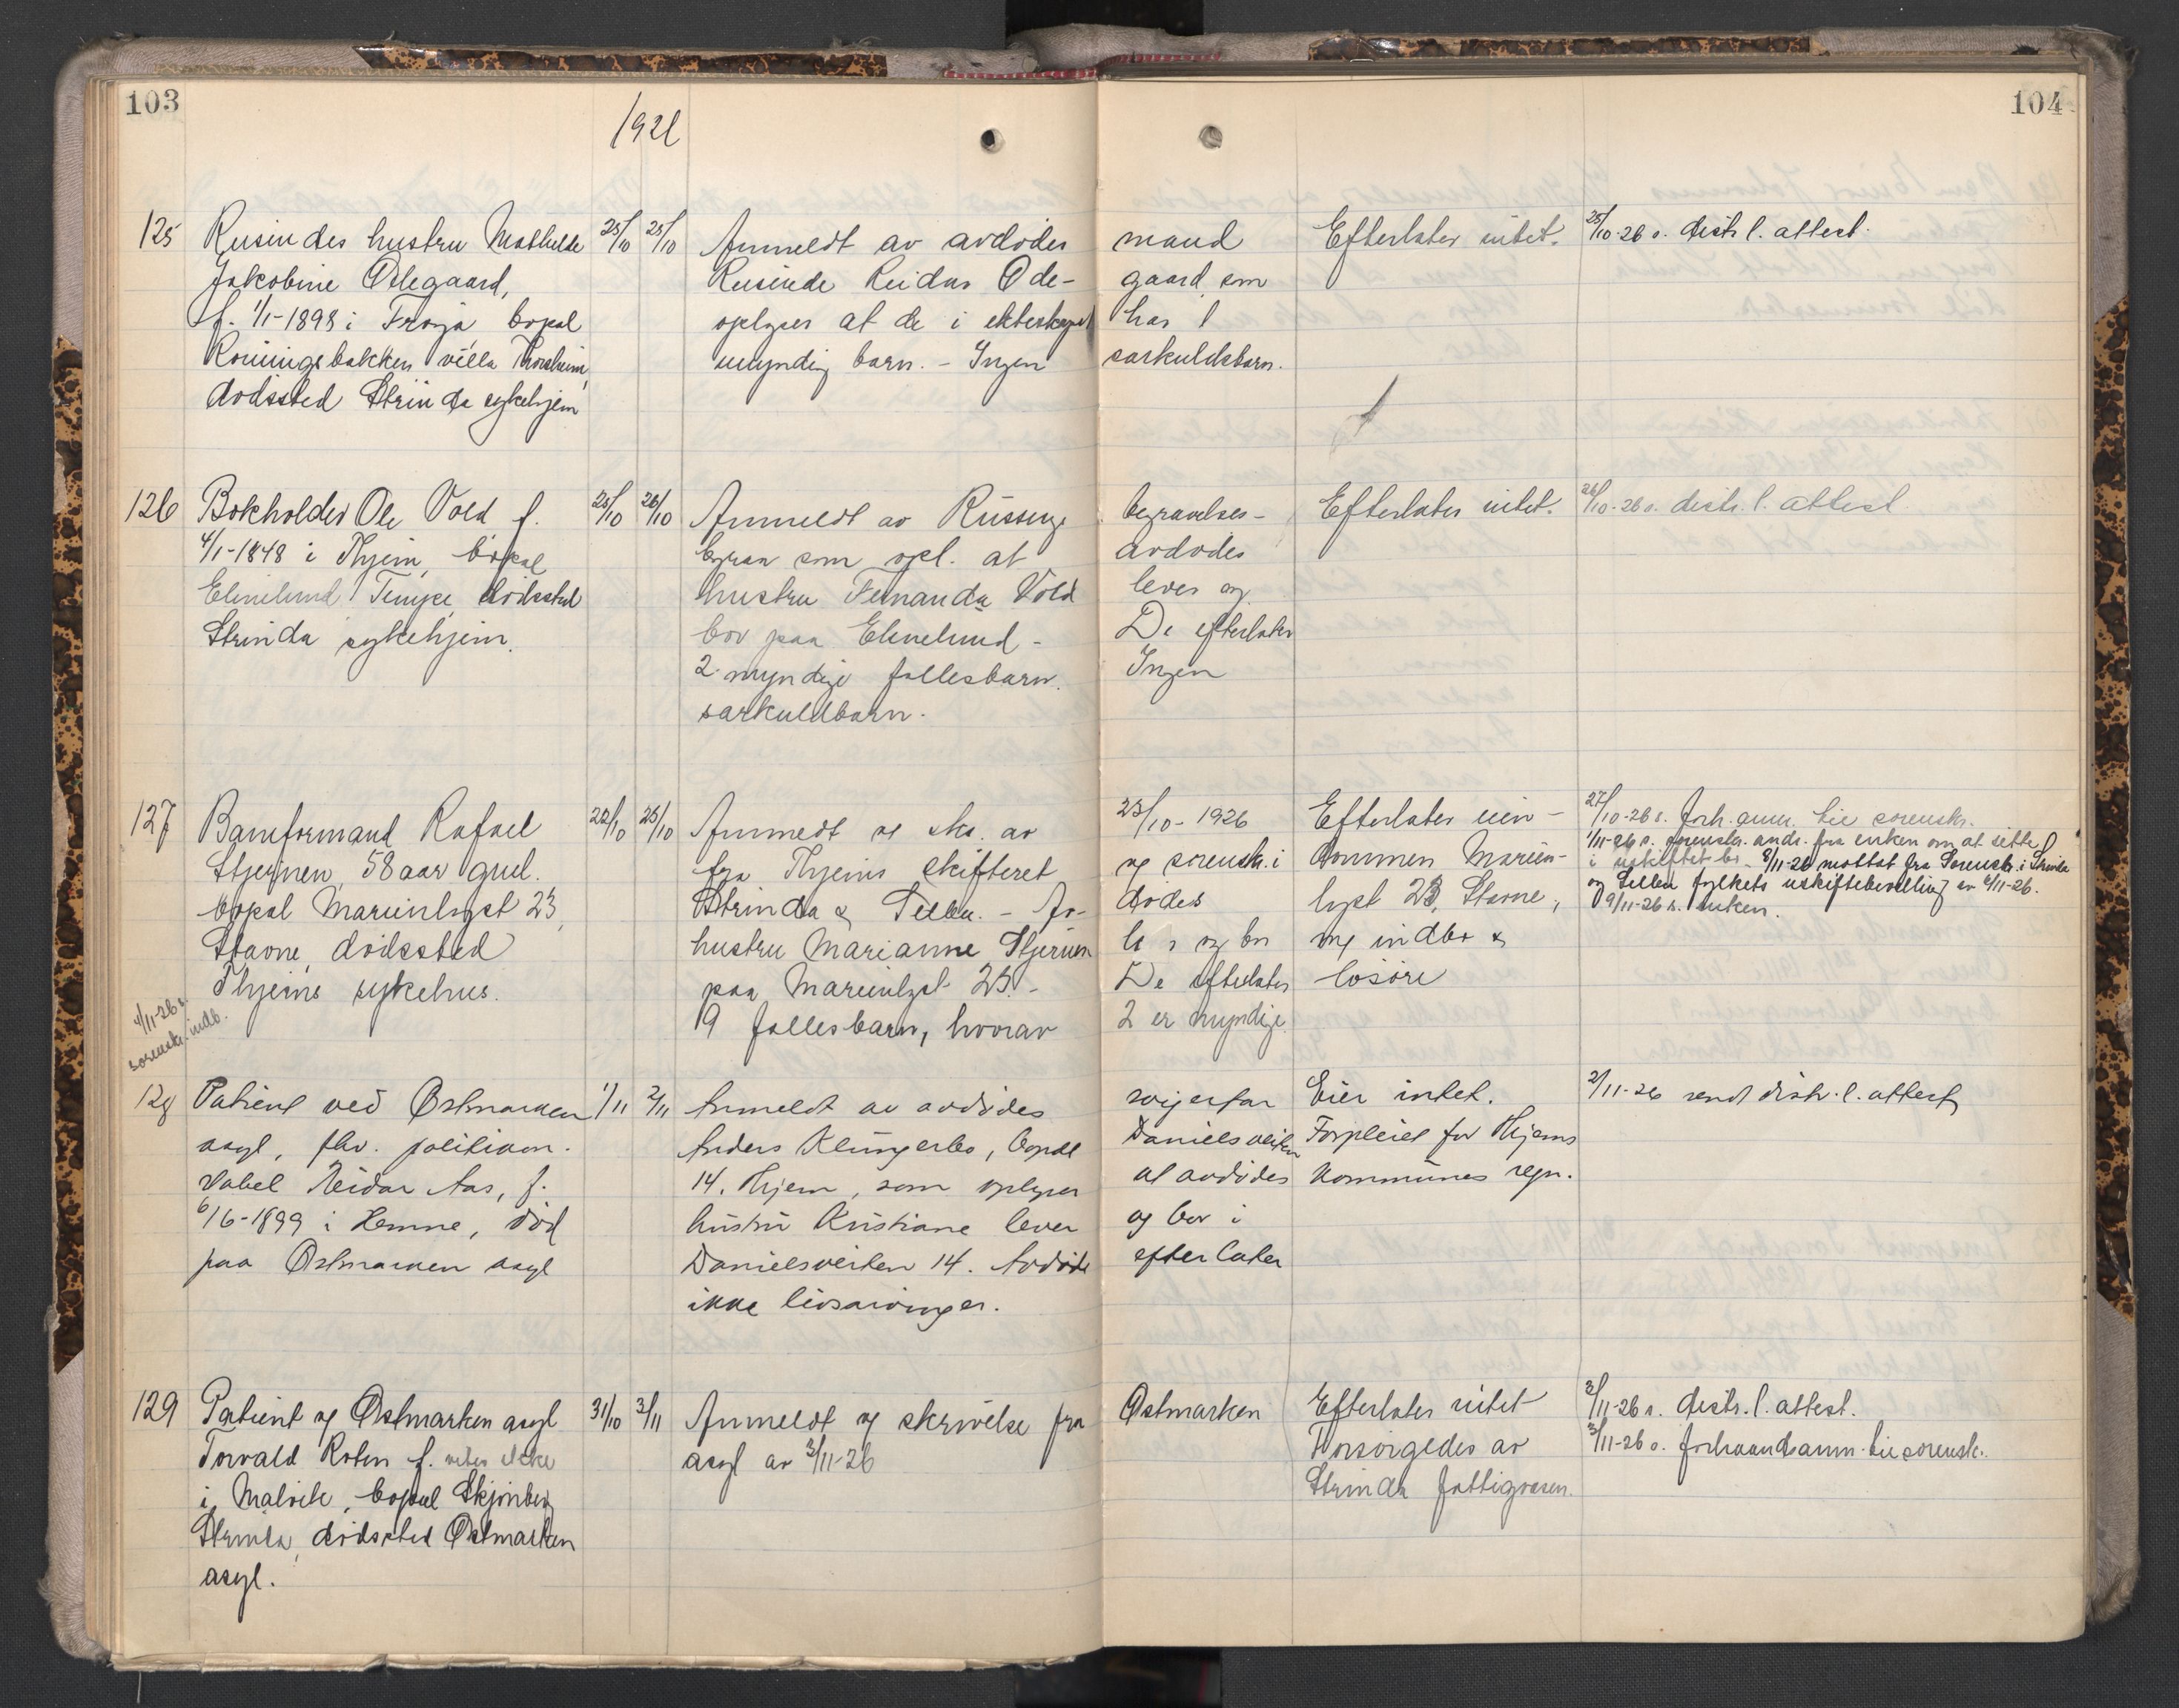 103
1926
104
125 Reisendes hustru Mathilde 25/10 25/10 Anmeldt av avdødes mand Efterlater intet. 25/10-26 s. distr. l. attest.
Jakobine Ødegaard, Reisende Reidar Øde- gaard, som
f. 1/1-1898 i Frøya bopæl oplyser at de i ekteskapet har 1
Rønningsbakken villa Thorsheim, umyndig barn. - Ingen særkuldsbarn.
dødssted Strinda sykehjem
126 Bokholder Ole Vold f. 25/10 26/10 Anmeldt av begravelses- Efterlater intet. 26/10-26 s. distr. l. attest.
4/1-1848 i Thjem, bopæl byraa som opl. at avdødes
Elinelund Tempe, dødssted hustru Fernanda Vold lever og
Strinda sykehjem. bor paa Elinelund - De efterlater
2 myndige fællesbarn. Ingen
særkuldbarn.
127 Baneformand Rafael 22/10 25/10 Anmeldt og skr. av 23/10-1926 Efterlater eien- 27/10-26 s. forh. anm. til sorenskr.
Stjernen, 58 aar gml. fra Thjems skifteret og sorenskr. i dommen Marien- 1/11-26 s. sorenskr. andr. fra enken om at sitte
bopæl Marienlyst 23, Strinda & Selbu. - Av- dødes lyst 23, Stavne, i uskiftet bo. 8/11-26 mottat fra Sorenskr. i Strinda
Stavne, dødssted hustru Marianne Stjernen lever og bor og indbo & og Selbu fylkets uskiftebevilling av 6/11-26.
Thjems sykehus. paa Marienlyst 23. - De efterlater løsøre 9/11-26 s. enken.
9 fællesbarn, hvorav 2 er myndige
4/11-26 s.
sorenskr. indb.
128 Patient ved Østmarken 1/11 2/11 Anmeldt av avdødes svigerfar Eier intet. 2/11-26 sendt distr. l. attest
asyl, fhv. politikon- Anders Klungerbo, bopæl Danielsveiten Forpleiet for Thjems
stabel Reidar Aas, f. 14, Thjem, som oplyser at avdødes kommunes regn.
6/6-1899 i Hemne, død hustru Kristiane lever og bor i
paa Østmarken asyl Danielsveiten 14. Avdøde efterlater
ikke livsarvinger.
129 Patient og Østmarken asyl 31/10 3/11 Anmeldt og skrivelse fra Østmarken Efterlater intet 3/11-26 s. distr. l. attest.
Torvald Roten f. vites ikke asyl av 3/11-26 Forsørgedes av 3/11-26 s. forhaandsanm. til sorenskr.
i Malvik, bopæl Skjønberg Strinda fattigvæsen.
Strinda, dødssted Østmarken
asyl.